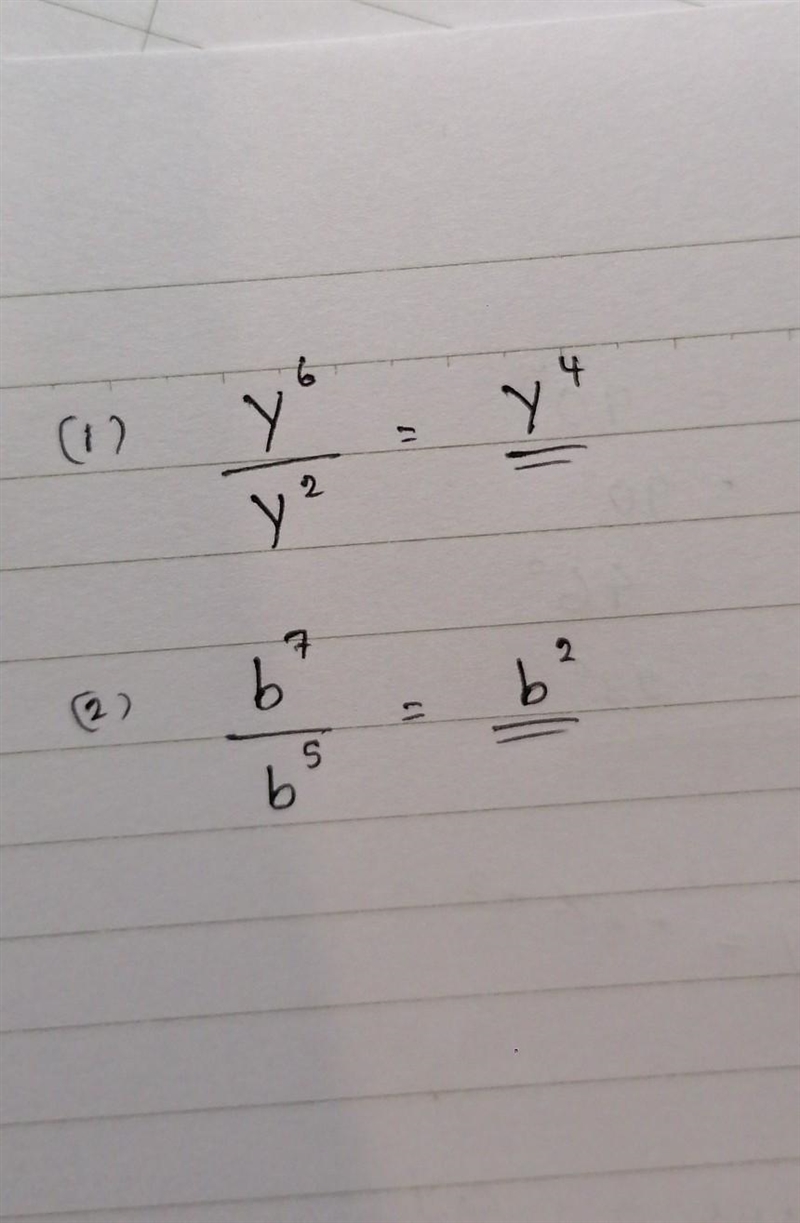 (1) y⁶/y² = y⁴
(2) b⁷/b⁵ = b²